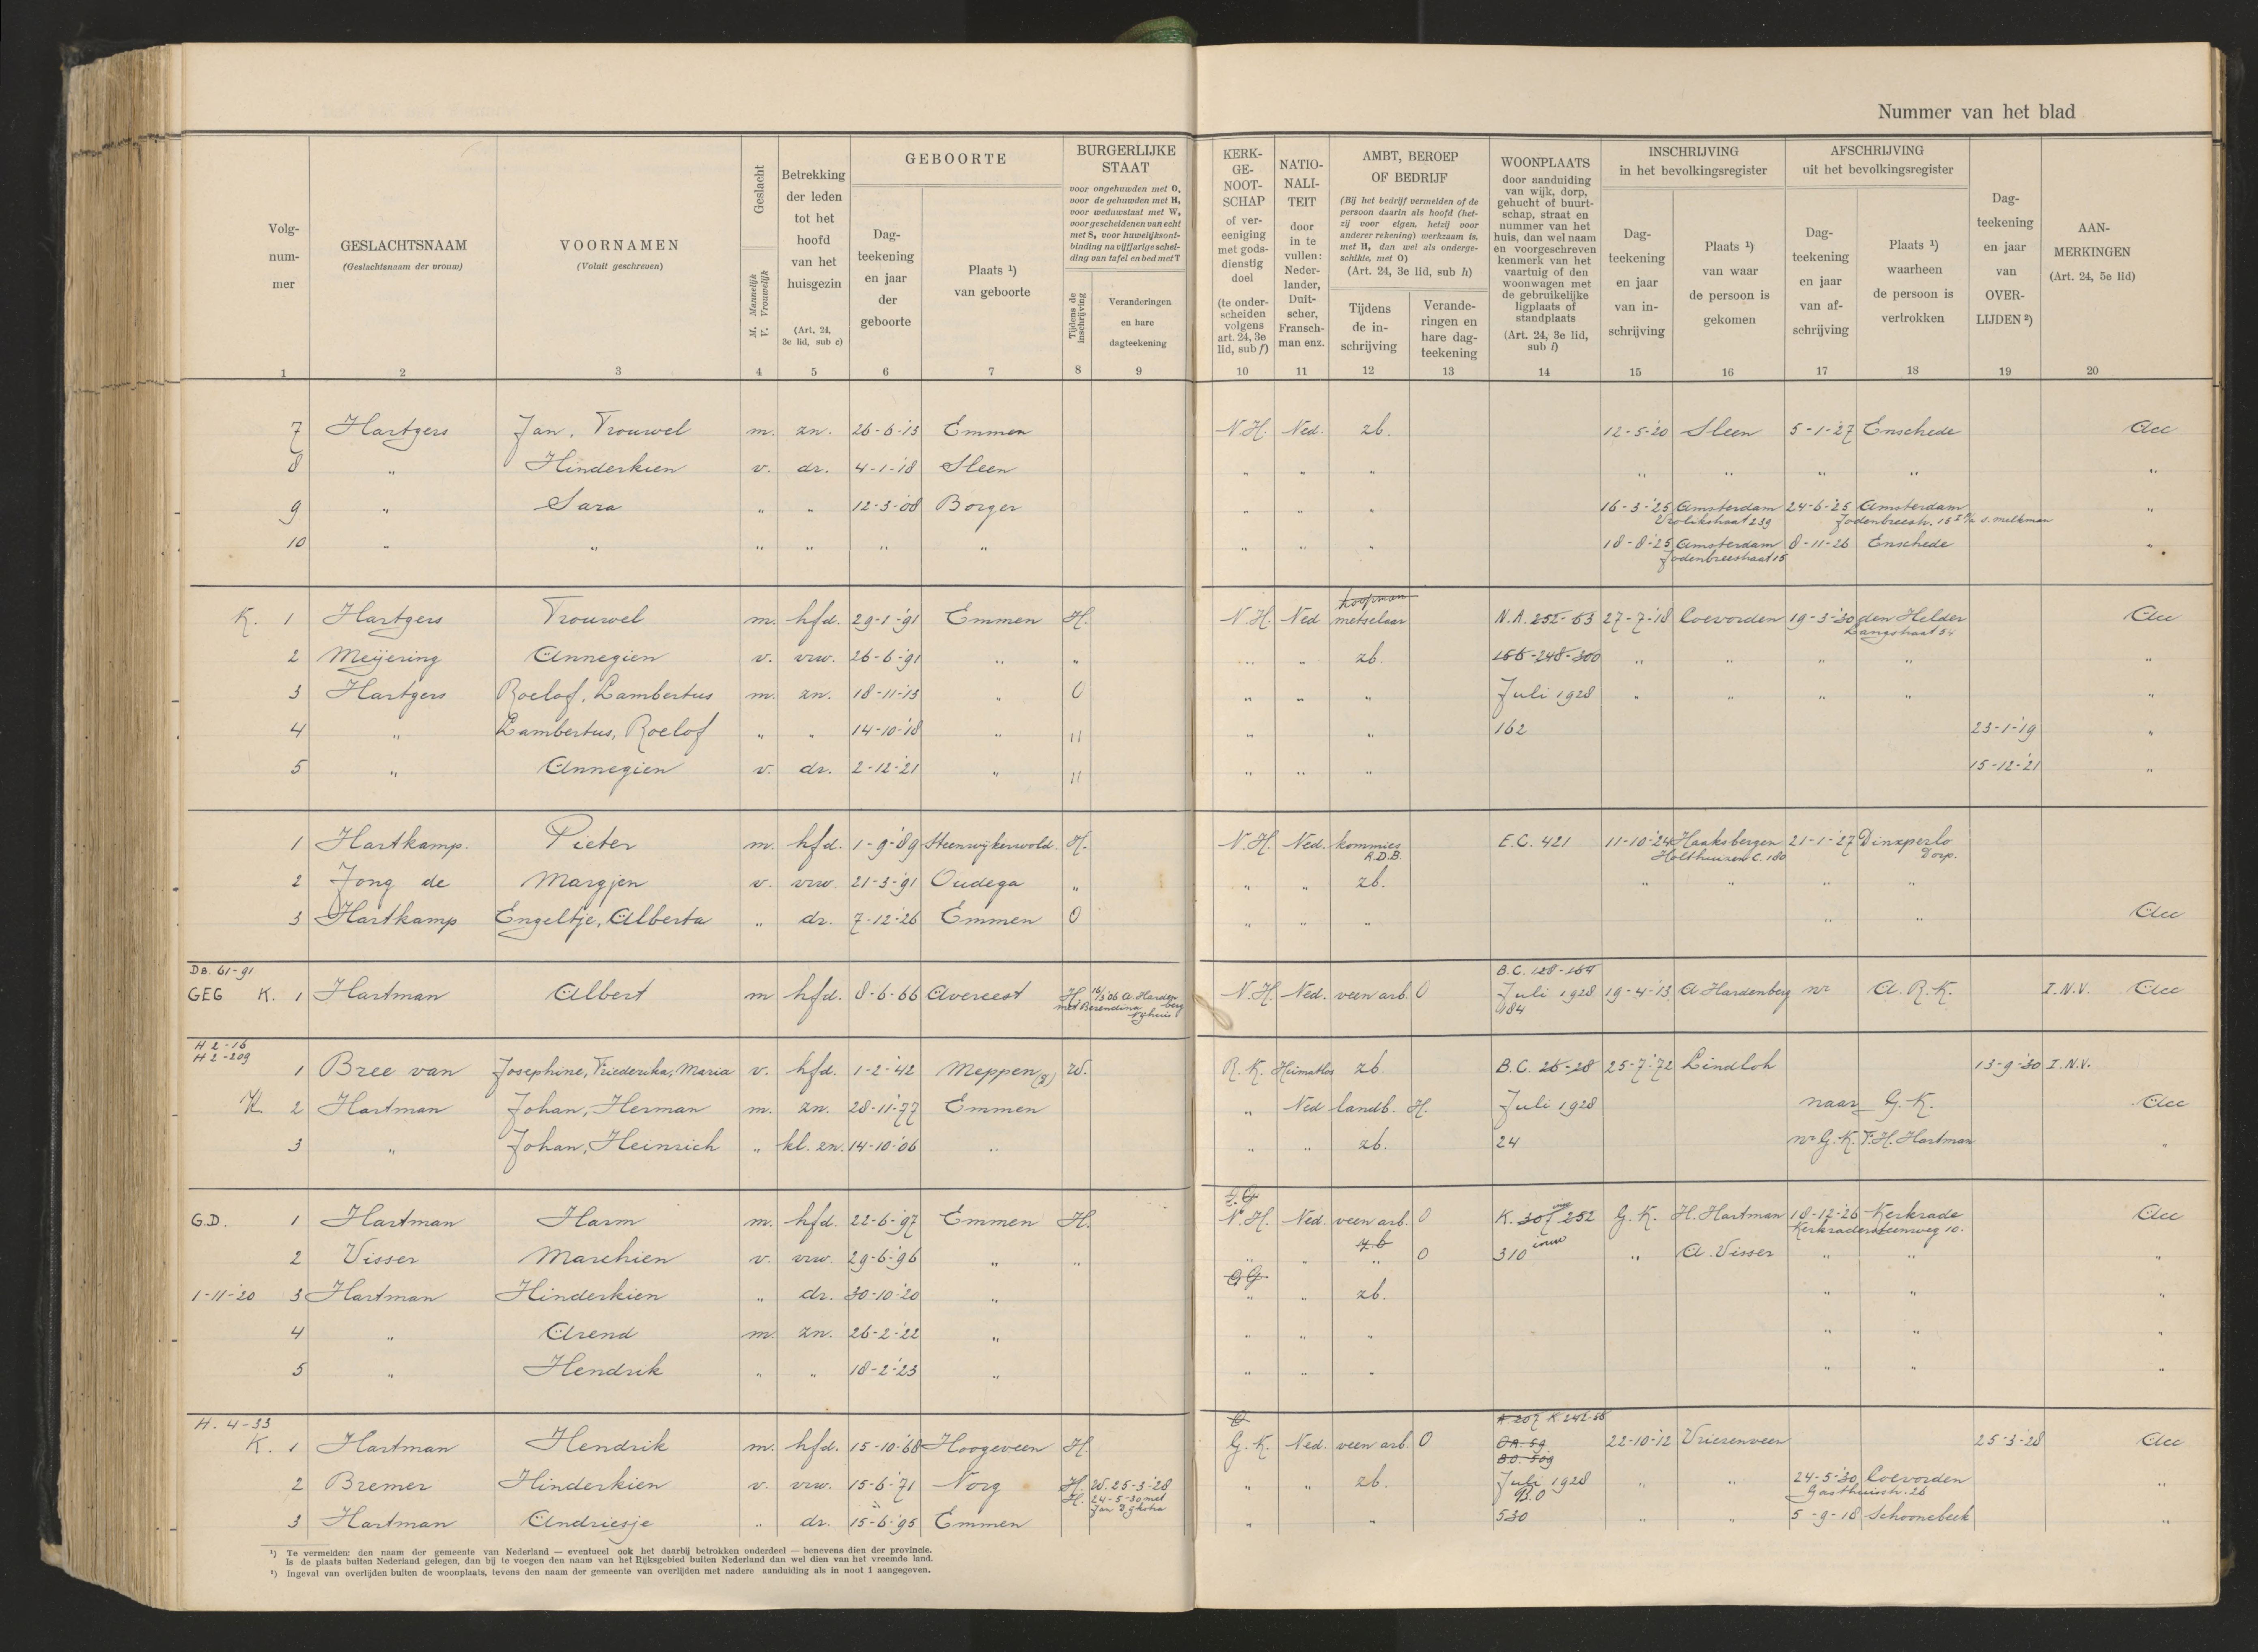 Nummer van het blad
Volg-
num-
mer
GESLACHTSNAAM
(Geslachtsnaam der vrouw)
VOORNAMEN
(Voluit geschreven)
Geslacht
M. Mannelijk
V. Vrouwelijk
Betrekking
der leden
tot het
hoofd
van het
huisgezin
(Art. 24,
3e lid, sub c)
GEBOORTE
Dag-
teekening
en jaar
der
geboorte
Plaats ¹)
van geboorte
BURGERLIJKE
STAAT
voor ongehuwden met O,
voor de gehuwden met H,
voor weduwstaat met W,
voor gescheidenen van echt
met S, voor huwelijksont-
binding na vijfjarige schei-
ding van tafel en bed met T
Tijdens de
inschrijving
Veranderingen
en hare
dagteekening
KERK-
GE-
NOOT-
SCHAP
of ver-
eeniging
met gods-
dienstig
doel
(te onder-
scheiden
volgens
art. 24, 3e
lid, sub f)
NATIO-
NALI-
TEIT
door
in te
vullen:
Neder-
lander,
Duit-
scher,
Fransch-
man enz.
AMBT, BEROEP
OF BEDRIJF
(Bij het bedrijf vermelden of de
persoon daarin als hoofd (het-
zij voor eigen, hetzij voor
anderer rekening) werkzaam is,
met H, dan wel als onderge-
schikte, met O)
(Art. 24, 3e lid, sub h)
Tijdens
de in-
schrijving
Verande-
ringen en
hare dag-
teekening
WOONPLAATS
door aanduiding
van wijk, dorp,
gehucht of buurt-
schap, straat en
nummer van het
huis, dan wel naam
en voorgeschreven
kenmerk van het
vaartuig of den
woonwagen met
de gebruikelijke
ligplaats of
standplaats
(Art. 24, 3e lid,
sub i)
INSCHRIJVING
in het bevolkingsregister
Dag-
teekening
en jaar
van in-
schrijving
Plaats ¹)
van waar
de persoon is
gekomen
AFSCHRIJVING
uit het bevolkingsregister
Dag-
teekening
en jaar
van af-
schrijving
Plaats ¹)
waarheen
de persoon is
vertrokken
Dag-
teekening
en jaar
van
OVER-
LIJDEN ²)
AAN-
MERKINGEN
(Art. 24, 5e lid)
1 2 3 4 5 6 7 8 9 10 11 12 13 14 15 16 17 18 19 20
7 Hartgers Jan, Trouwel m. zn. 26-6-'13 Emmen N.H. Ned. zb. 12-5-'20 Sleen 5-1-'27 Enschede Acc
8 " Hinderkien v. dr. 4-1-'18 Sleen " " " " " " " "
9 " Sara " " 12-3-'08 Borger " " " 16-3-'25 Amsterdam 24-6-'25 Amsterdam "
Jodenbreestr. 15 s. melkman
10 " " " " " " " " " 18-8-'25 Amsterdam 8-11-26 Enschede "
Jodenbreestraat 15
K. 1 Hartgers Trouwel m. hfd. 29-1-'91 Emmen H. N.H. Ned koopman
metselaar N.A. 252-53 27-7-'18 Coevorden 19-3-'30 den Helder Acc
Langstraat 54
2 Meijering Annegien v. vrw. 26-6-'91 " " " " zb. 248-300 " " " " "
3 Hartgers Roelof, Lambertus m. zn. 18-11-'13 " O " " " Juli 1928 " " " " "
4 " Lambertus, Roelof " " 14-10-'18 " " " 162 23-1-'19 "
5 " Annegien v. dr. 2-12-'21 " " " " " 15-12-'21 "
1 Hartkamp. Pieter m. hfd. 1-9-'89 Steenwijkerwold. H. N.H. Ned. kommies E.C. 421 11-10-'24 Haaksbergen 21-1-'27 Dinxperlo
R.D.B. Holthuizen C. 180 Dorp.
2 Jong de Margjen v. vrw. 21-3-'91 Oudega " " " zb. " " " "
3 Hartkamp Engeltje, Alberta " dr. 7-12-'26 Emmen O " " " " " Acc
DB. 61-91 B.C. 128-
GEG K. 1 Hartman Albert m hfd. 8-6-'66 Avereest H. 16/3 '06 A. Harden
berg
met Berendina
Nijhuis N.H. Ned. veen arb. O Juli 1928 19-4-'13 A. Hardenberg nr A. R. K. I.N.V. Acc
184
H 2-16
H 2-209
1 Bree van Josephine, Friederika, Maria v. hfd. 1-2-'42 Meppen w. R.K. Heimatlos zb. B.C. 26-28 25-7-'72 Lindloh 13-9-'30 I.N.V.
K. 2 Hartman Johan, Herman m. zn. 28-11-'77 Emmen " Ned landb. H. Juli 1928 naar G.K. Acc
3 " Johan, Heinrich " kl. zn. 14-10-'06 " " " zb. 24 nr G.K. F.H. Hartman "
G.D. 1 Hartman Harm m. hfd. 22-6-'97 Emmen H. N.H. Ned. veen arb. O K. 307 252 G.K. H. Hartman 18-12-'26 Kerkrade Acc
Kerkradersteenweg 10.
2 Visser Marchien v. vrw. 29-6-'96 " " " " z.b " O 310 " A. Visser " " "
1-11-20 3 Hartman Hinderkien " dr. 30-10-'20 " " " zb. " " "
4 " Arend m. zn. 26-2-'22 " " " " " " "
5 " Hendrik " " 18-2-'23 " " " " " " "
H. 4-33 A 207 K 242-
K. 1 Hartman Hendrik m. hfd. 15-10-'68 Hoogeveen H. G.K. Ned. veen arb. O OA. 59 22-10-'12 Vriezenveen 25-3-'28 Acc
B.O. 509
2 Bremer Hinderkien v. vrw. 15-6-'71 Norg H. W. 25-3-'28 " " zb. Juli 1928 " " 24-5-'30 Coevorden "
H. 24-5-30 met B.O Gasthuisstr. 26
3 Hartman Andriesje " dr. 15-6-'95 Emmen " " 530 " " 5-9-18 Schoonebeek "
¹) Te vermelden: den naam der gemeente van Nederland — eventueel ook het daarbij betrokken onderdeel — benevens dien der provincie.
Is de plaats buiten Nederland gelegen, dan bij te voegen den naam van het Rijksgebied buiten Nederland dan wel dien van het vreemde land.
²) Ingeval van overlijden buiten de woonplaats, tevens den naam der gemeente van overlijden met nadere aanduiding als in noot 1 aangegeven.